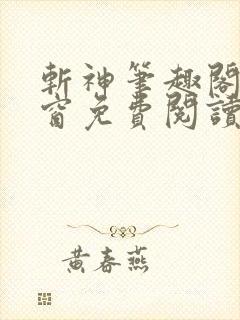 斬神筆趣閣
窗免費閱讀
黃春燕